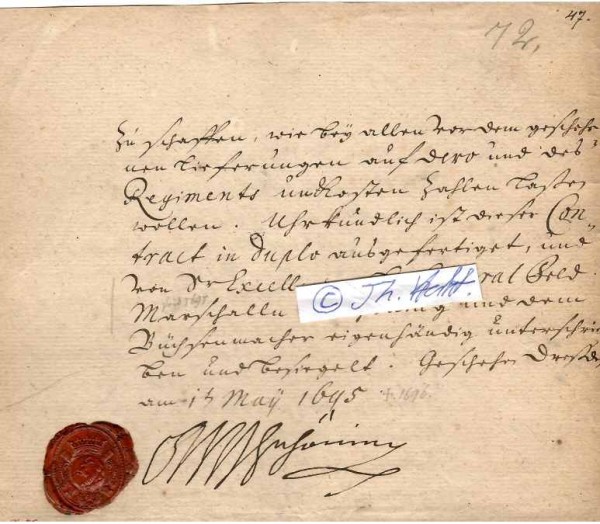 47.
72.
Zu schaffen, wie bey allen vor dem gescheh
nen Lieferungen auf dero und des
Regiments unkosten Zahlen laßen
wollen. Uhrkündlich ist dieser Con-
tract in duplo ausgefertiget, und
von Sr Excell ral Feld
Marschalln und dem
© Th. Hecht.
Büchsenmacher eigenhändig unterschrie
ben und besiegelt. Geschehen Dresden
am 1t May 1695